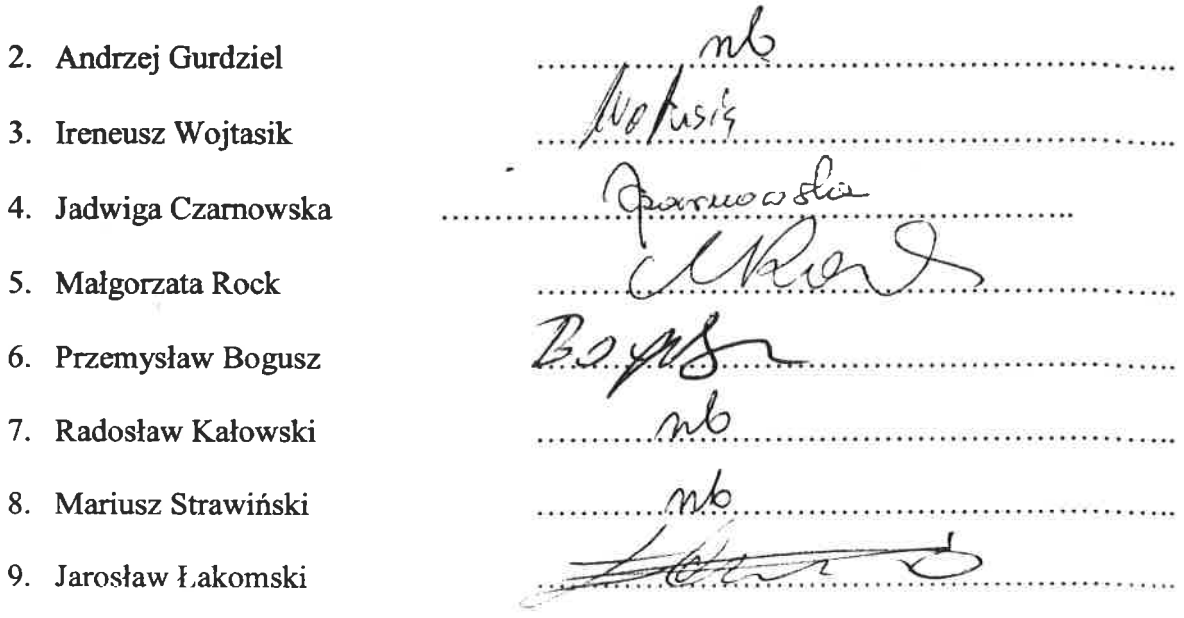 2. Andrzej Gurdziel nb
3. Ireneusz Wojtasik
4. Jadwiga Czarnowska Czarnowska
5. Małgorzata Rock MRock
6. Przemysław Bogusz Bogusz
7. Radosław Kałowski nb
8. Mariusz Strawiński nb
9. Jarosław Łakomski